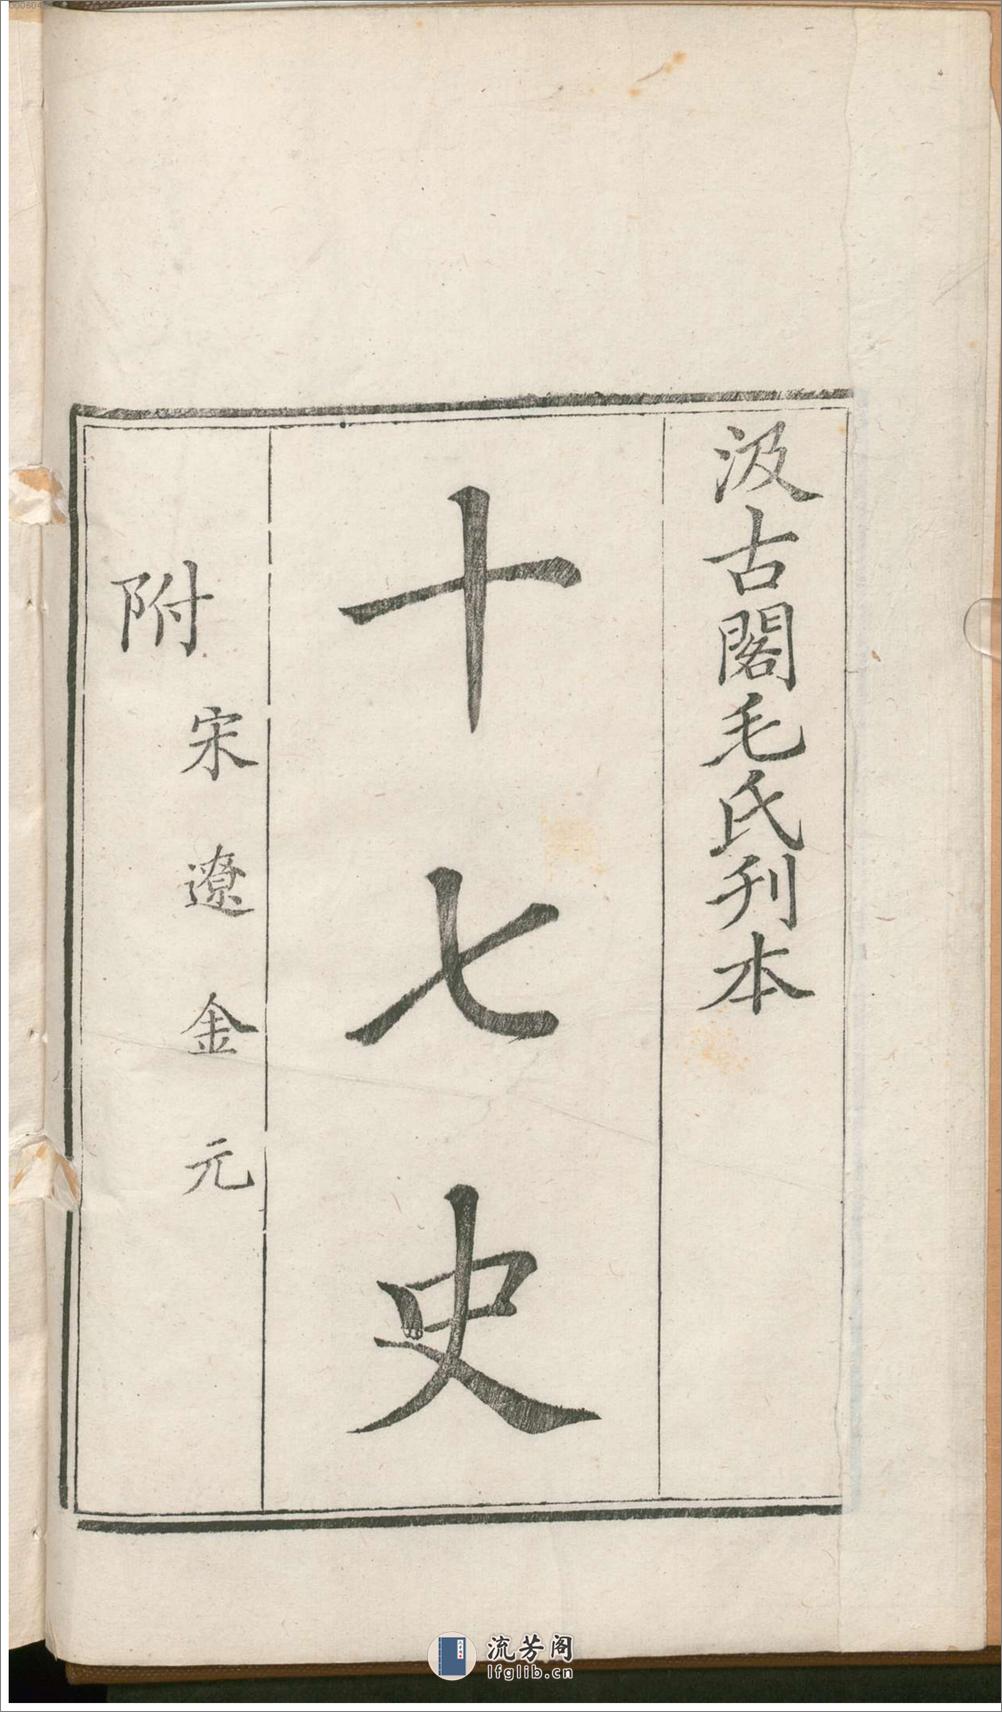 汲古閣毛氏刊本
十七史
附宋遼金元
流芳阁
lfglib.cn